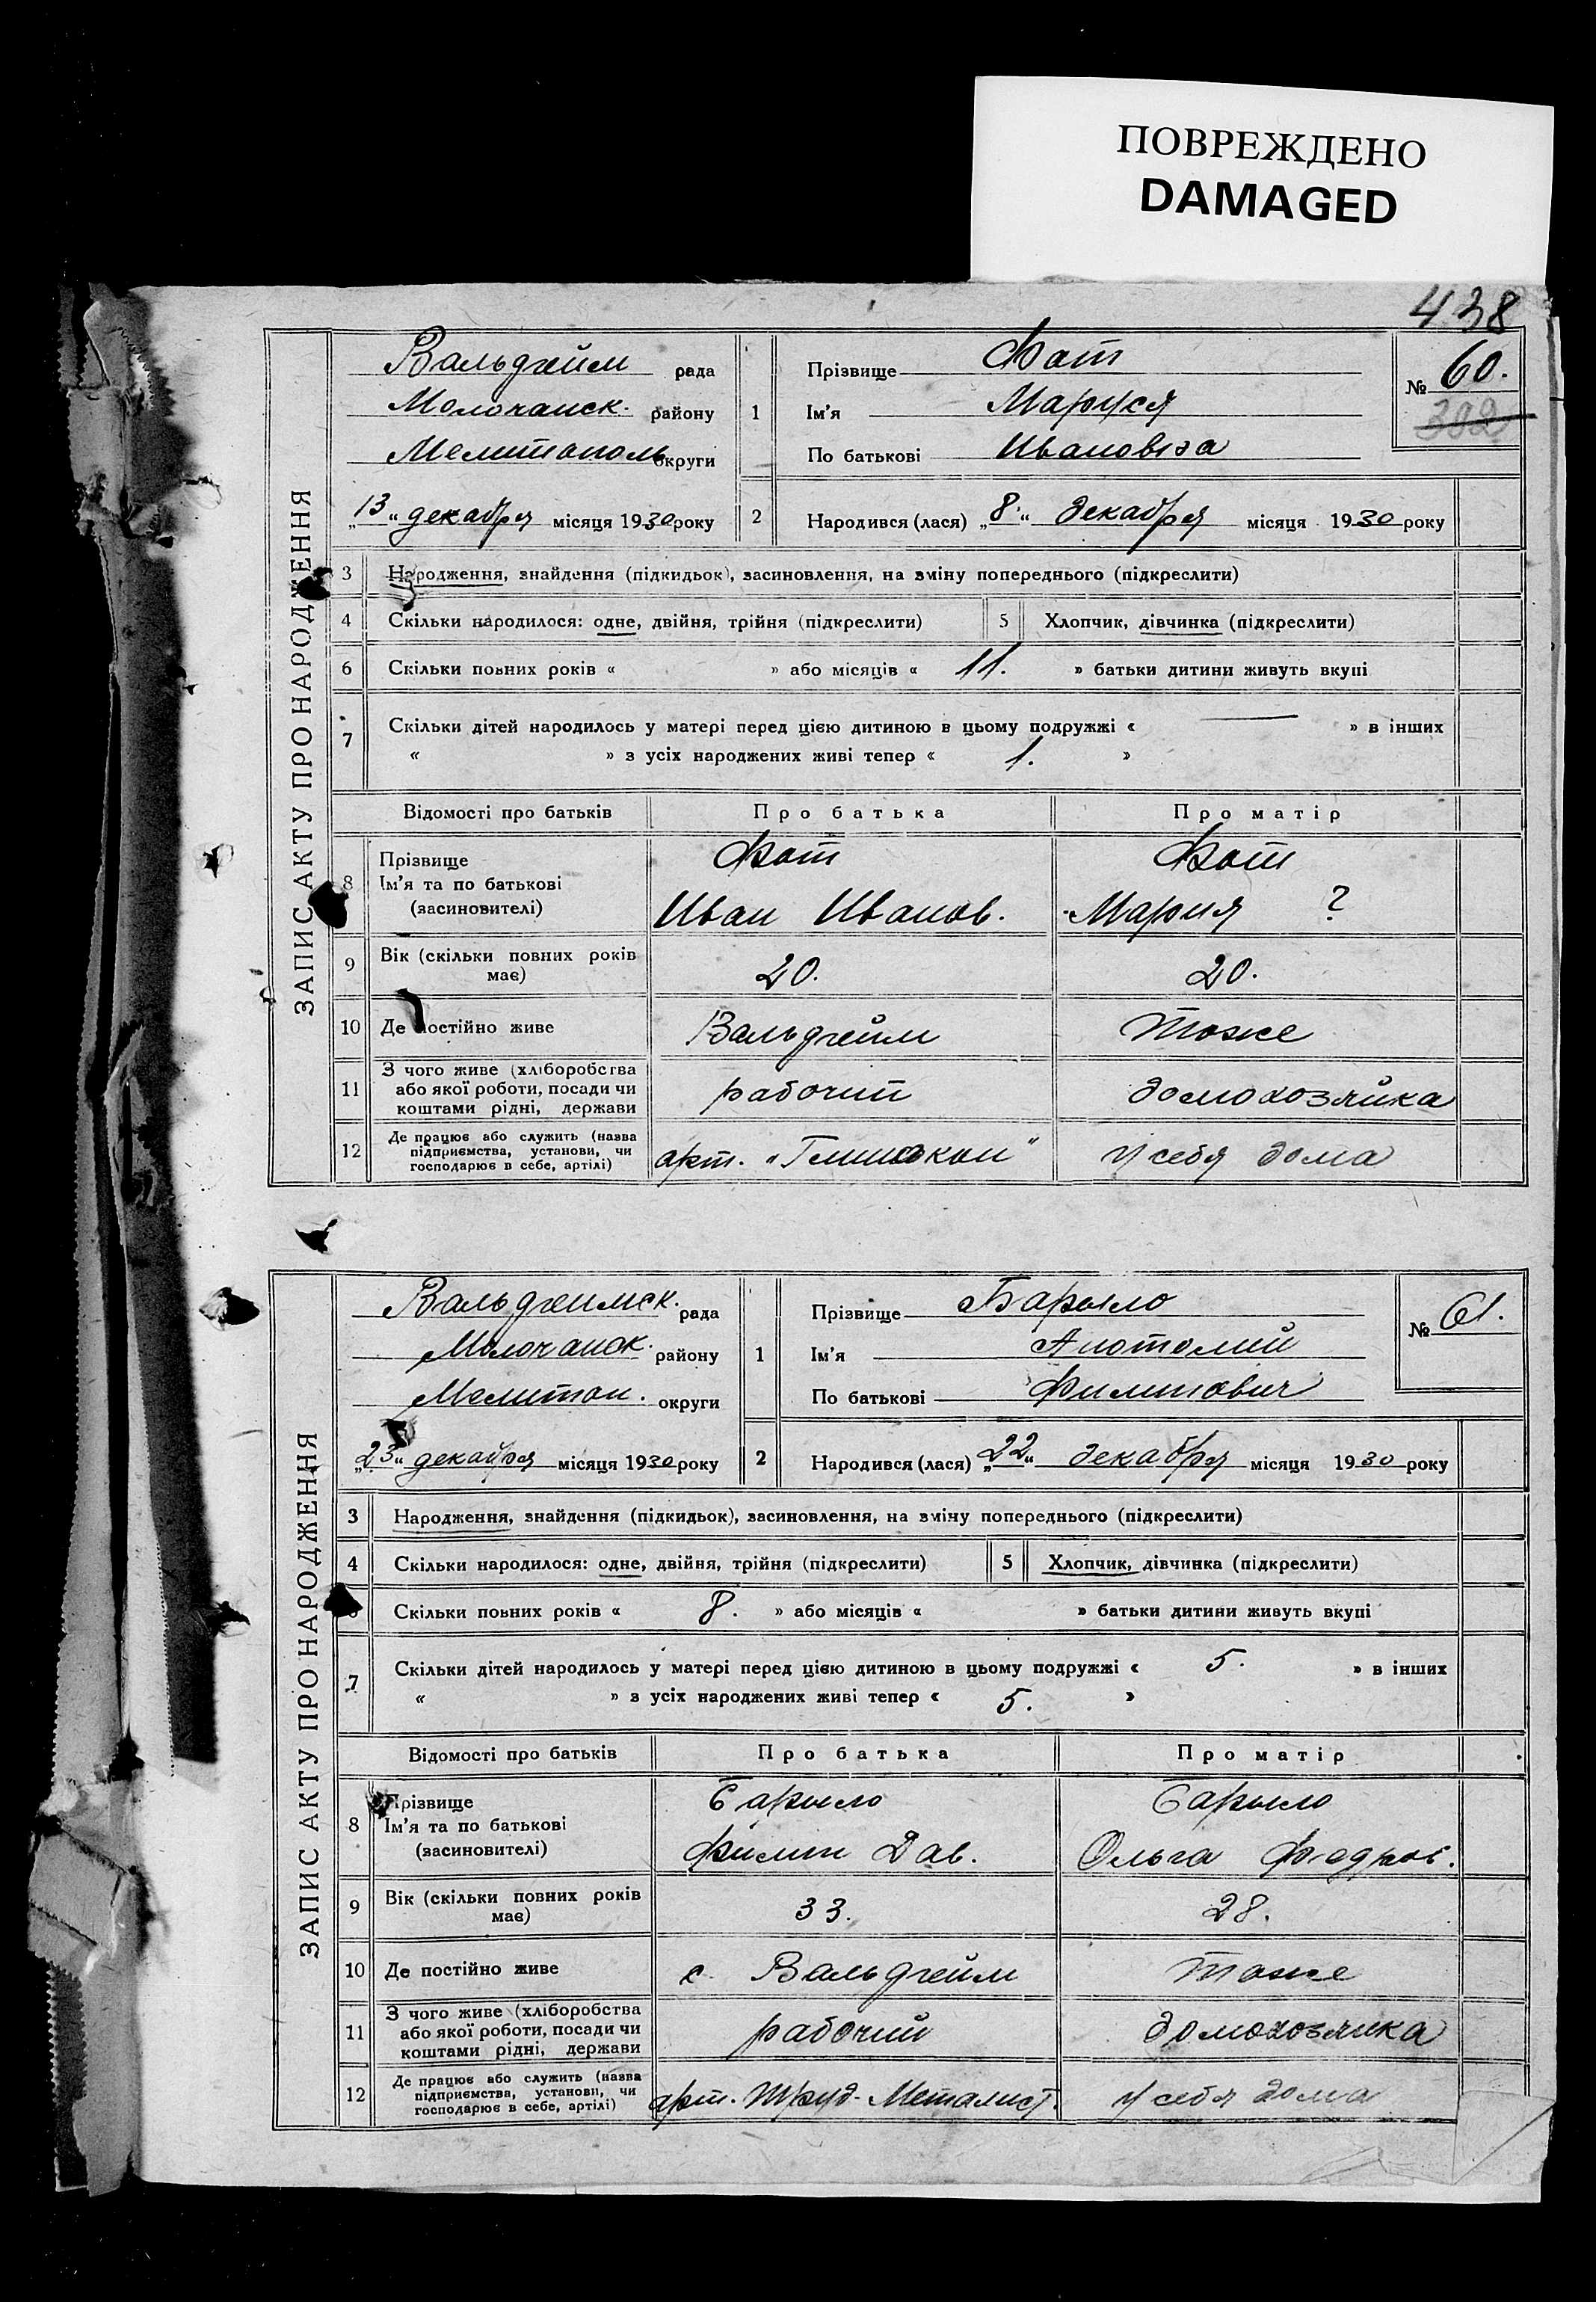 ПОВРЕЖДЕНО
DAMAGED
438
ЗАПИС АКТУ ПРО НАРОДЖЕННЯ
Вальдгейм рада
Молочанск. району
Мелитополь округи
„13“ декабря місяця 1930 року
1 Прізвище Фот
Ім’я Маруся
По батькові Ивановна
№ 60.
382
2 Народився (лася) „8“ декабря місяця 1930 року
3 Народження, знайдення (підкидьок), засиновлення, на зміну попереднього (підкреслити)
4 Скільки народилося: одне, двійня, трійня (підкреслити) 5 Хлопчик, дівчинка (підкреслити)
6 Скільки повних років « » або місяців « 11. » батьки дитини живуть вкупі
7 Скільки дітей народилось у матері перед цією дитиною в цьому подружжі « — » в інших
« » з усіх народжених живі тепер « 1. »
Відомості про батьків Про батька Про матір
8 Прізвище Фот Фот
Ім’я та по батькові
(засиновителі) Иван Иванов. Мария ?
9 Вік (скільки повних років
має) 20. 20.
10 Де постійно живе Вальдгейм тоже
11 З чого живе (хліборобства
або якої роботи, посади чи
коштами рідні, держави рабочий домохозяйка
12 Де працює або служить (назва
підприємства, установи, чи
господарює в себе, артілі) арт. у себя дома
ЗАПИС АКТУ ПРО НАРОДЖЕННЯ
Вальдгеимск. рада
Молочанск. району
Мелитоп. округи
„23“ декабря місяця 1930 року
1 Прізвище Барыло
Ім’я Анотолий
По батькові Филипович
№ 61.
2 Народився (лася) „22“ декабря місяця 1930 року
3 Народження, знайдення (підкидьок), засиновлення, на зміну попереднього (підкреслити)
4 Скільки народилося: одне, двійня, трійня (підкреслити) 5 Хлопчик, дівчинка (підкреслити)
6 Скільки повних років « 8. » або місяців « » батьки дитини живуть вкупі
7 Скільки дітей народилось у матері перед цією дитиною в цьому подружжі « 5. » в інших
« » з усіх народжених живі тепер « 5. »
Відомості про батьків Про батька Про матір
8 Прізвище Барыло Барыло
Ім’я та по батькові
(засиновителі) Филип Дав. Ольга Федров.
9 Вік (скільки повних років
має) 33. 28.
10 Де постійно живе с. Вальдгейм тоже
11 З чого живе (хліборобства
або якої роботи, посади чи
коштами рідні, держави рабочий домохозяика
12 Де працює або служить (назва
підприємства, установи, чи
господарює в себе, артілі) арт. Труд-Металист. у себя дома